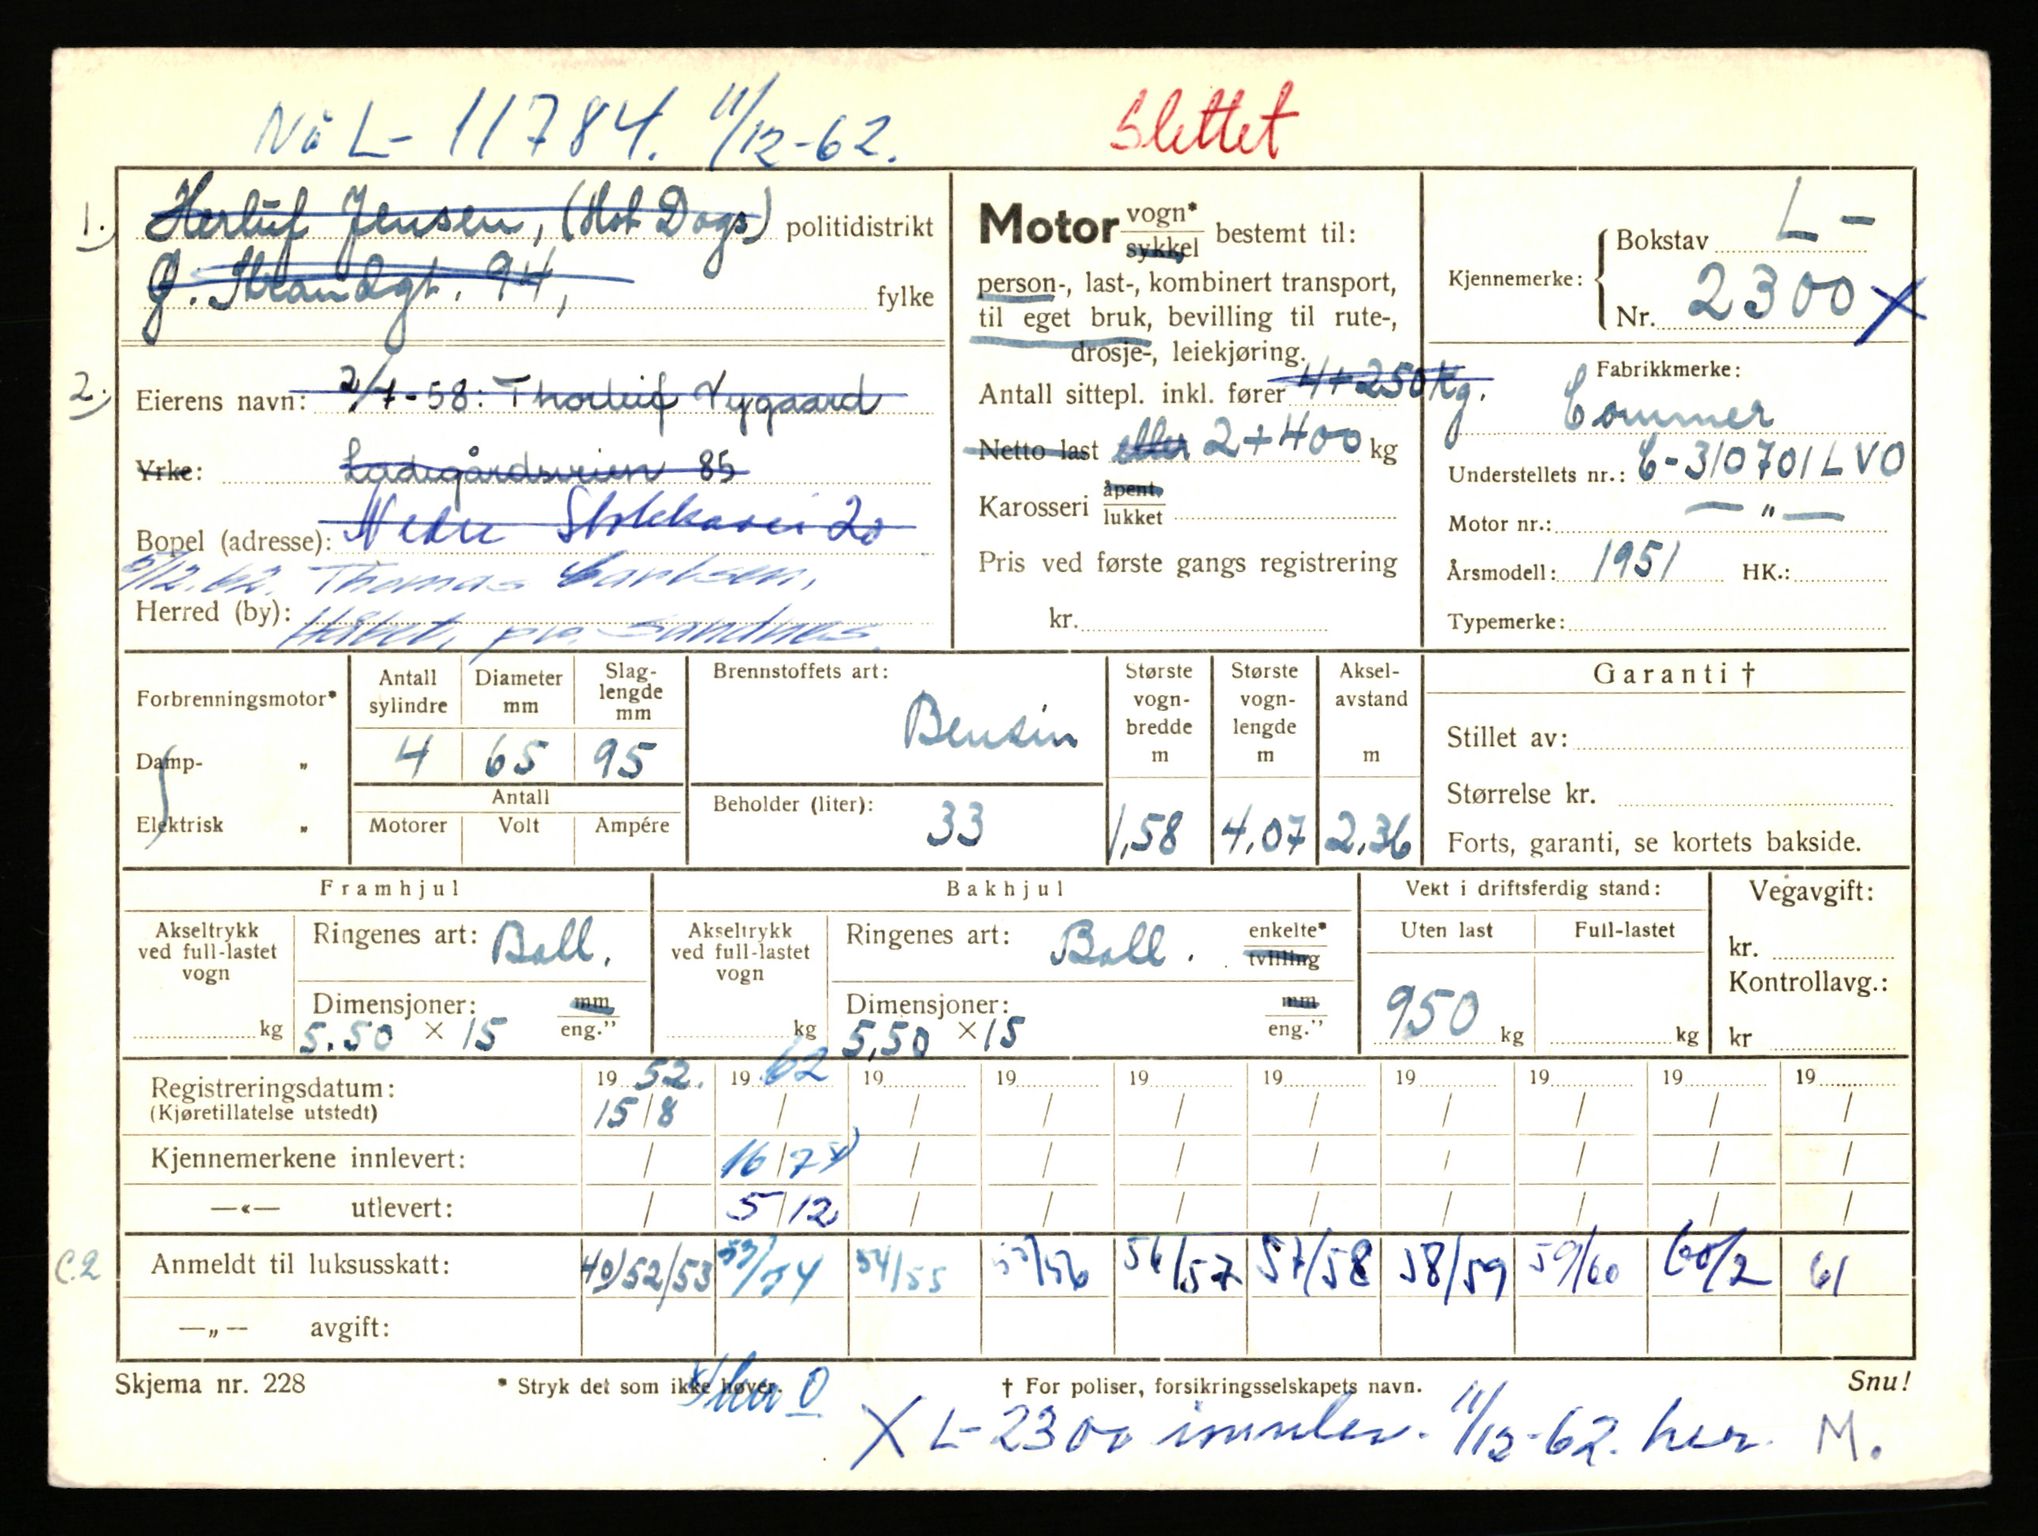 Nå L- 11784. 11/12-62.
Slettet
1.
Herluf Jensen, (Hot Dogs) politidistrikt
Ø. Strandgt. 94, fylke
2.
Eierens navn: 2/7-58: Thorleif Nygaard
Yrke: Ladegårdsveien 85
Bopel (adresse): Nedre Stokkavei 20
5/12.62. Thomas
Herred (by): pr. Sandnes.
Motor vogn* sykkel bestemt til:
person-, last-, kombinert transport,
til eget bruk, bevilling til rute-,
drosje-, leiekjøring.
Antall sittepl. inkl. fører 4+250 kg.
Netto last eller 2+400 kg
Karosseri åpent, lukket
Pris ved første gangs registrering
kr.
Kjennemerke: Bokstav L-
Nr. 2300 X
Fabrikkmerke:
Commer
Understellets nr.: C-310701LVO
Motor nr.: — " —
Årsmodell: 1951 HK.:
Typemerke:
Forbrenningsmotor*
Damp- "
Elektrisk "
Antall sylindre 4
Diameter mm 65
Slag-lengde mm 95
Antall
Motorer Volt Ampére
Brennstoffets art: Bensin
Beholder (liter): 33
Største vogn-bredde m 1,58
Største vogn-lengde m 4.07
Aksel-avstand m 2.36
Garanti †
Stillet av:
Størrelse kr.
Forts, garanti, se kortets bakside.
Framhjul
Akseltrykk ved full-lastet vogn
kg
Ringenes art: Ball.
Dimensjoner: mm
5.50 × 15 eng."
Bakhjul
Akseltrykk ved full-lastet vogn
kg
Ringenes art: Ball. enkelte* tvilling
Dimensjoner: mm
5,50 × 15 eng."
Vekt i driftsferdig stand:
Uten last Full-lastet
950 kg kg
Vegavgift:
kr.
Kontrollavg.:
kr
Registreringsdatum: 19 52. 19 62 19 19 19 19 19 19 19 19
(Kjøretillatelse utstedt) 15/8 / / / / / / / / /
Kjennemerkene innlevert: / 16/7 x) / / / / / / / /
—«— utlevert: / 5/12 / / / / / / / /
C.2
Anmeldt til luksusskatt: 40/52/53 53/54 54/55 55/56 56/57 57/58 58/59 59/60 60/2 61
—„— avgift:
Skjema nr. 228
* Stryk det som ikke høver.
† For poliser, forsikringsselskapets navn.
Snu!
X L-2300 innlev. 11/12-62. her. M.